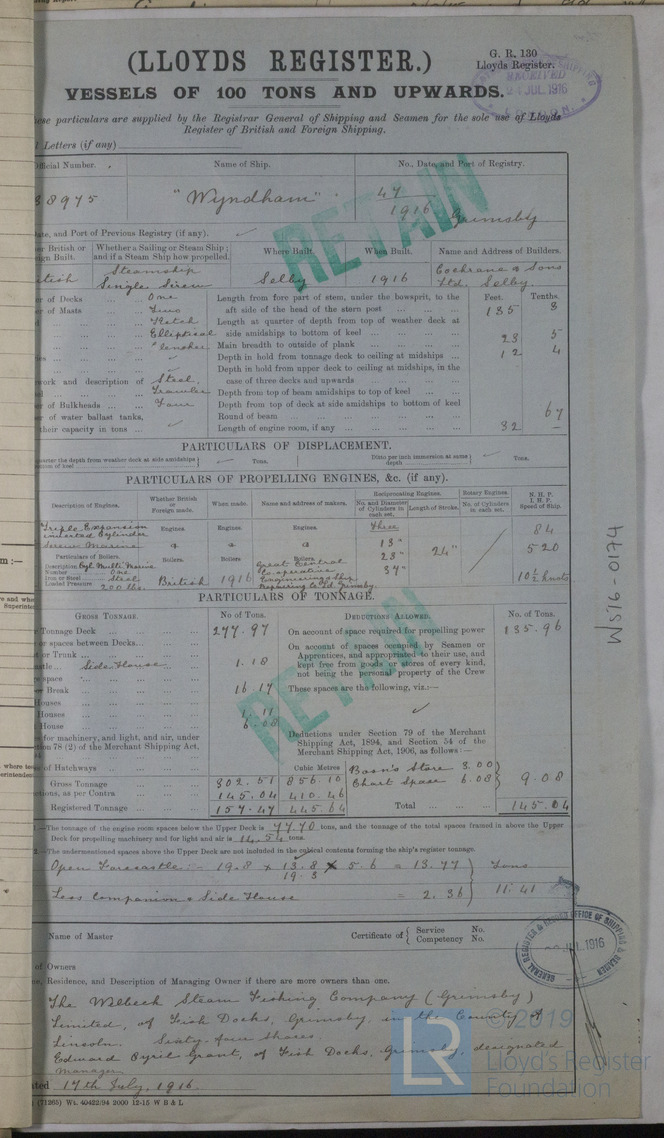 (LLOYDS REGISTER.)
G. R. 130
Lloyds Register.
RECEIVED
JUL 1916
VESSELS OF 100 TONS AND UPWARDS.
ese particulars are supplied by the Registrar General of Shipping and Seamen for the sole use of Lloyds
Register of British and Foreign Shipping.
l Letters (if any)
Official Number.
Name of Ship.
No., Date, and Port of Registry.
8975
"Wyndham"
47
1916 Grimsby
RETAIN
ate, and Port of Previous Registry (if any).
er British or
ign Built.
Whether a Sailing or Steam Ship;
and if a Steam Ship how propelled.
Where Built.
When Built.
Name and Address of Builders.
itish
Steamship
Single Screw
Selby
1916
Cochrane & Sons
Ltd. Selby.
er of Decks ... One
er of Masts ... Two
Ketch
Elliptical
Clencher
work and description of Steel,
Trawler
er of Bulkheads ... Four
er of water ballast tanks,
their capacity in tons ...
Feet. Tenths.
Length from fore part of stem, under the bowsprit, to the
aft side of the head of the stern post ... 135 3
Length at quarter of depth from top of weather deck at
side amidships to bottom of keel ...
Main breadth to outside of plank ... 23 5
Depth in hold from tonnage deck to ceiling at midships ... 12 4
Depth in hold from upper deck to ceiling at midships, in the
case of three decks and upwards ...
Depth from top of beam amidships to top of keel ...
Depth from top of deck at side amidships to bottom of keel
Round of beam ... 67
Length of engine room, if any ... 32 –
PARTICULARS OF DISPLACEMENT.
the depth from weather deck at side amidships
ottom of keel
Tons.
Ditto per inch immersion at same
depth
Tons.
PARTICULARS OF PROPELLING ENGINES, &c. (if any).
Description of Engines.
Whether British or Foreign made.
When made.
Name and address of makers.
Reciprocating Engines.
No. and Diameter of Cylinders in each set.
Length of Stroke.
Rotary Engines.
No. of Cylinders in each set.
N. H. P.
I. H. P.
Speed of Ship.
Triple Expansion
inverted Cylinder
Screw Marine
Engines.
Engines.
Engines.
Three
13"
23"
37"
24"
84
520
10½ knots
Particulars of Boilers.
Description Cyl. Multi. Marine
Number One
Iron or Steel Steel
Loaded Pressure 200 lbs.
Boilers.
British
Boilers
1916
Boilers
Great Central
Co-operative
Engineering & Ship
Repairing Co Ld. Grimsby
PARTICULARS OF TONNAGE.
GROSS TONNAGE.
No of Tons.
DEDUCTIONS ALLOWED.
No. of Tons.
Tonnage Deck ... 277.97
or spaces between Decks...
t or Trunk ...
stle ... Side House 1.18
e space
Break 16.17
Houses
Houses
House 6.08
es for machinery, and light, and air, under
tion 78 (2) of the Merchant Shipping Act,
of Hatchways
On account of space required for propelling power 135.96
On account of spaces occupied by Seamen or
Apprentices, and appropriated to their use, and
kept free from goods or stores of every kind,
not being the personal property of the Crew
These spaces are the following, viz.:—
RETAIN
Deductions under Section 79 of the Merchant
Shipping Act, 1894, and Section 54 of the
Merchant Shipping Act, 1906, as follows:—
Cubic Metres
Bosn's Store 3.00
Chart Space 6.08
9.08
Gross Tonnage 302.51 856.10
ctions, as per Contra 145.04 410.46
Registered Tonnage 157.47 445.64
Total ... 145.04
1.—The tonnage of the engine room spaces below the Upper Deck is 47.70 tons, and the tonnage of the total spaces framed in above the Upper
Deck for propelling machinery and for light and air is tons.
2.—The undermentioned spaces above the Upper Deck are not included in the cubical contents forming the ship's register tonnage.
Open Forecastle:- 19.8 x 13.8 x 5.6 = 13.77
19.3
Less Companion & Side House = 2.36
Tons
11.41
Name of Master
Certificate of
Service No.
Competency No.
GENERAL REGISTER & RECORD OFFICE OF SHIPPING & SEAMEN
JUL. 1916
of Owners
e, Residence, and Description of Managing Owner if there are more owners than one.
The Welbeck Steam Fishing Company (Grimsby)
Limited, of Fish Docks, Grimsby, in the County of
Lincoln. Sixty-four Shares
Edward Cyril Grant, of Fish Docks, Grimsby, designated
Manager
ated 17th July, 1916.
(71265) Wt. 40422/94 2000 12-15 W B & L
WS16-0174
LR
© 2019
Lloyd's Register
Foundation